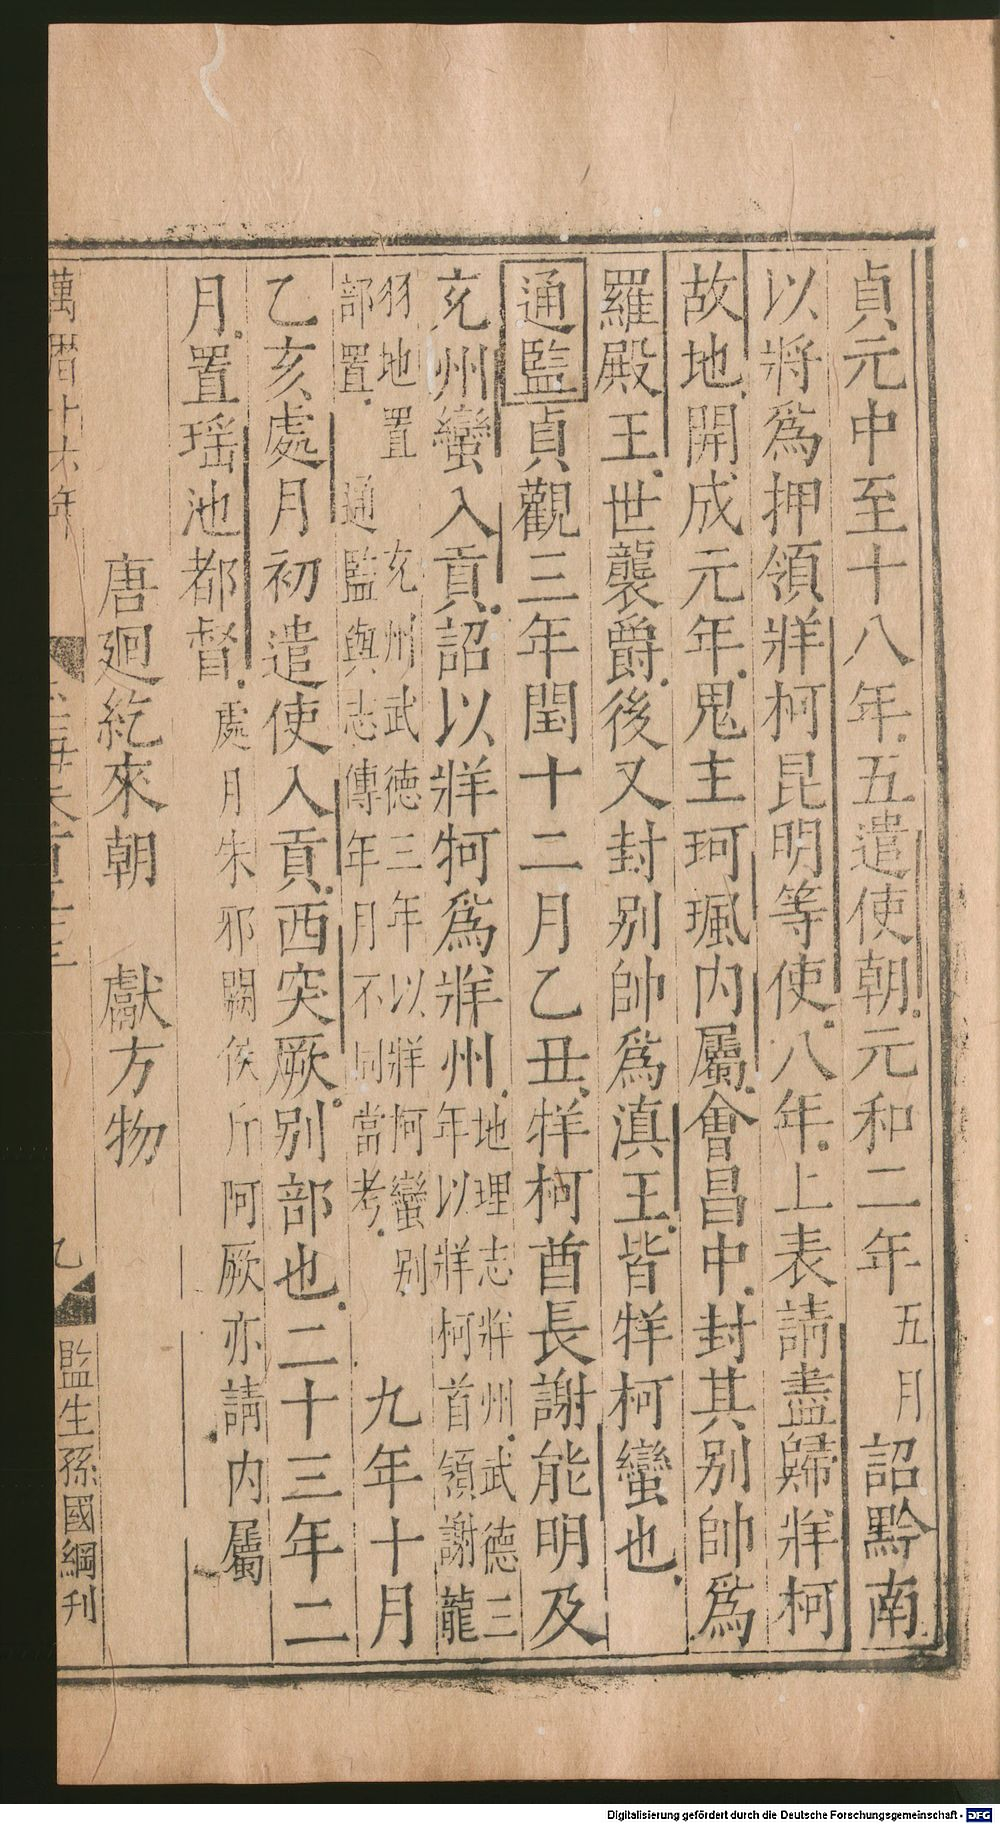 貞元中至十八年五遣使朝元和二年五月詔黔南
以將為押領牂柯昆明等使八年上表請盡歸牂柯
故地開成元年鬼主珂珮內屬會昌中封其別帥為
羅殿王世襲爵後又封别帥為滇王皆牂柯蠻也
通監貞觀三年閏十二月乙丑牂柯酋長謝能明及
充州蠻入貢詔以牂牱為牂州地理志牂州武德三
年以牂柯首領謝龍
羽地置 充州武德三年以牂柯蠻别
部置 通監與志傳年月不同當考
九年十月
乙亥處月初遣使入貢西突厥别部也二十三年二
月置瑤池都督處月朱邪闕俟斤阿厥亦請內屬
唐廻紇來朝 獻方物
萬曆十六年
玉海卷百五十三
九
監生孫國綱刊
Digitalisierung gefördert durch die Deutsche Forschungsgemeinschaft - DFG